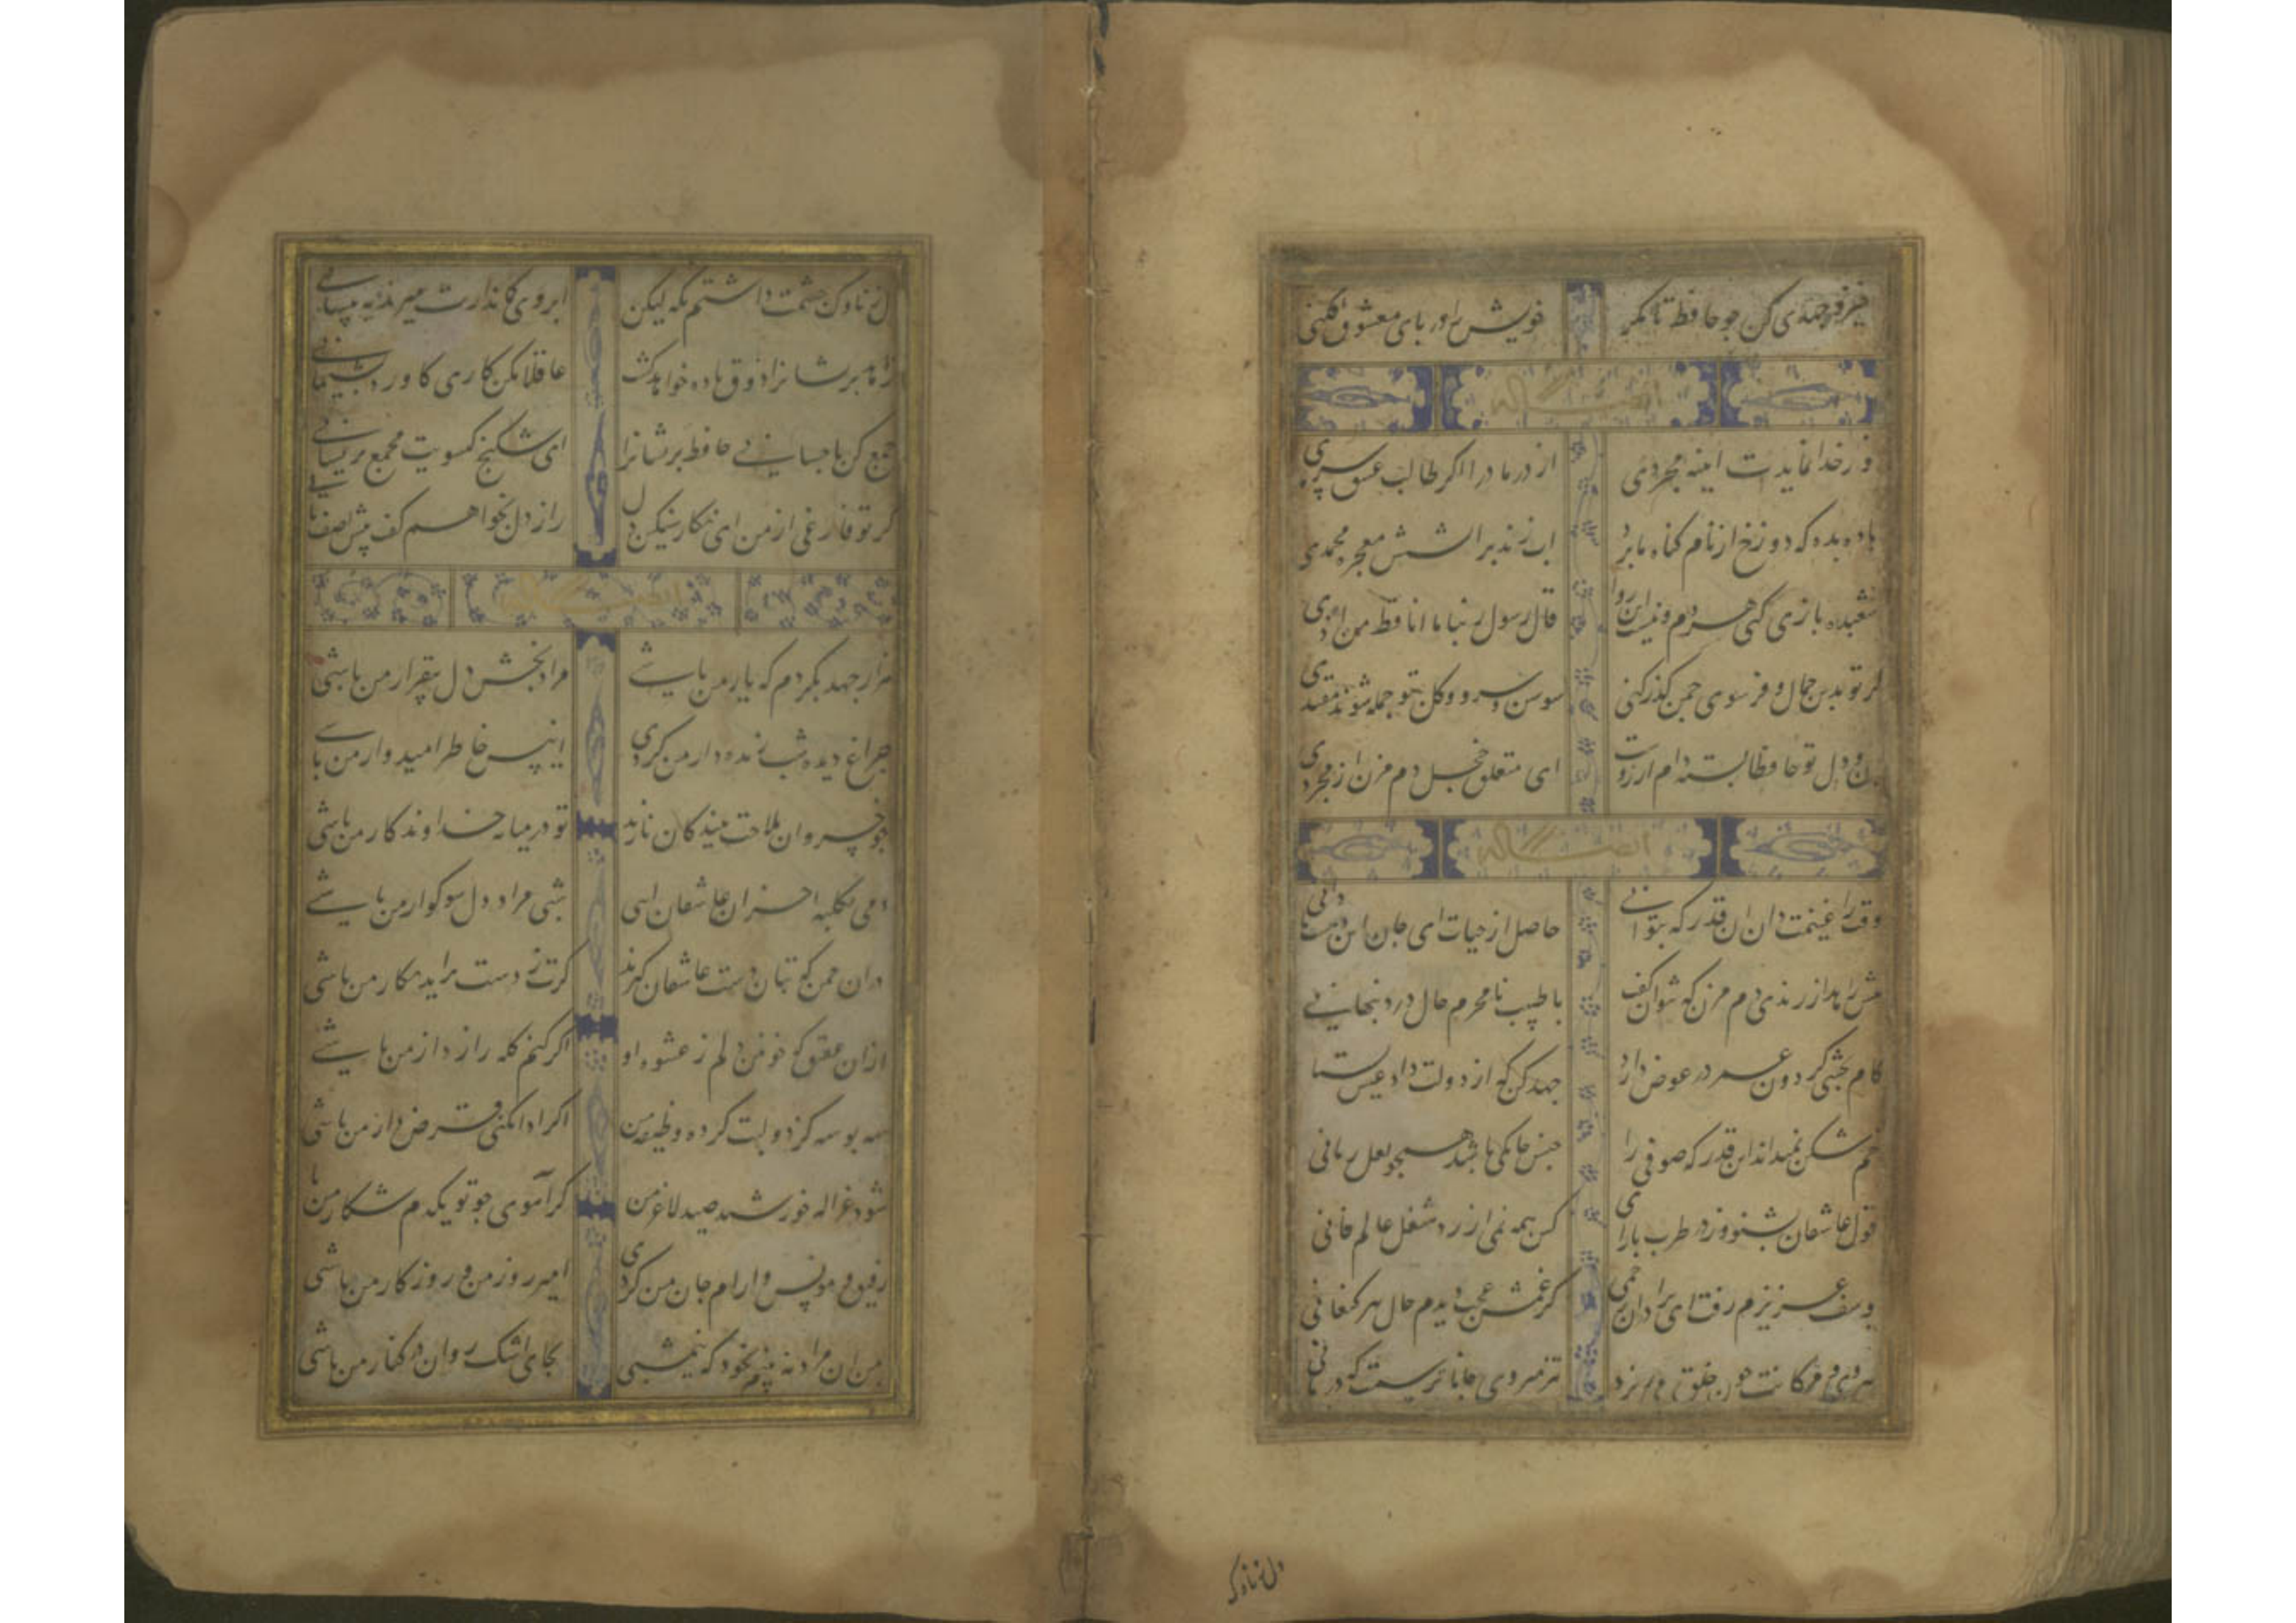 خیز و جهدی کن چو حافظ تا مگر خویش را در پای معشوق افکنی
ایضا له
نور خدا نمایدت اینه مجردی از در ما درا اگر طالب عشق سرمدی
باده بده که دوزخ از نام کناه ما برد اب زند بر اتشش معجزه محمدی
شعبده بازی کنی هر دم و نیست این روا قال رسول ربنا ما انا قط من ددی
کر تو بدین جمال و فر سوی چمن کذر کنی سوسن و سرو و کل بتو جمله شوند مقتدی
دل تو حافظا بسته دام ارزوت ای متعلق خجل دم مزن از مجردی
ایضا له
وقت را غنیمت دان ان قدر که بتوانی حاصل از حیات ای جان این دمست تا دانی
پیش زاهد از رندی دم مزن که نتوان کفت با طبیب نامحرم حال درد پنهانی
کام بخشی کردون عمر در عوض دارد جهد کن که از دولت داد عیش بستانی
خم شکن نمیداند این قدر که صوفی را جنس خانکی باشد همچو لعل رمانی
قول عاشقان بشنو وز در طرب بازای کین همه نمی ارزد شغل عالم فانی
یوسف عزیزم رفت ای برادران رحمی کز غمش عجب دیدم حال پیر کنعانی
میروی و مژکانت خون خلق میریزد تیز میروی جانا ترسمت که درمانی
دل ز ناوک
دل ز ناوک چشمت داشتم نکه لیکن ابروی کماندارت میبرد به پیشانی
زاهد پریشانرا ذوق باده خواهد کشت عاقلا مکن کاری کاورد پشیمانی
جمع کن باحسانی حافظ پریشانرا ای شکنج کیسویت مجمع پریشانی
کر تو فارغی از من ای نکار سنکین دل راز دل بخواهم کفت پیش اصف ثانی
ایضا له
هزار جهد بکردم که یار من باشی مراد بخش دل بیقرار من باشی
چراغ دیده شب زنده دار من کردی انیس خاطر امیدوار من باشی
چو خسروان ملاحت ببندکان نازند تو در میانه خداوندکار من باشی
دمی بکلبه احزان عاشقان ایی شبی مراد دل سوکوار من باشی
در ان چمن که بتان دست عاشقان کیرند کرت ز دست براید نکار من باشی
ازان عقیق که خونین دلم ز عشوه او اکر کنم کله راز دار من باشی
سه بوسه کز دو لبت کرده وظیفه من اکر ادا نکنی قرض دار من باشی
شود غزاله خورشید صید لاغر من کر آهوی چو تو یکدم شکار من باشی
رفیق و مونس و ارام جان من کردی امیر روز من و روزکار من باشی
من این مراد نه بینم بخود که نیمشبی بجای اشک روان در کنار من باشی